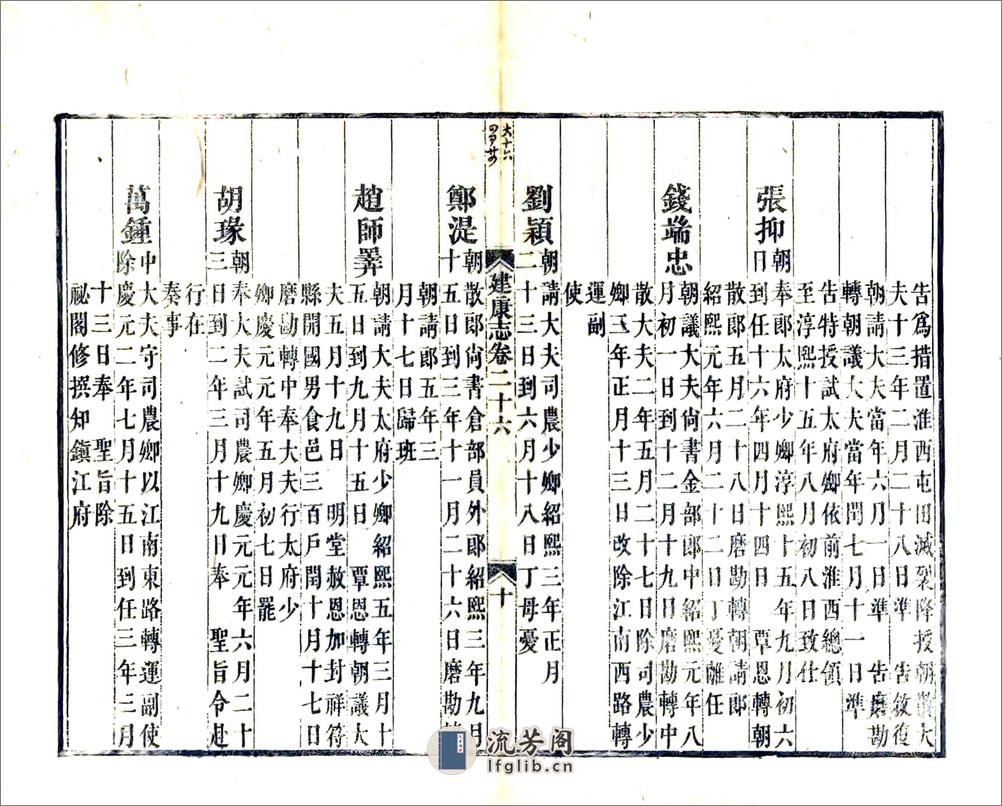 告爲措置淮西屯田滅裂降授朝散大
夫十三年二月二十八日準　告敘復
朝請大夫當年六月一日準　告磨勘
轉朝議大夫當年閏七月十一日準
告特授試太府卿依前淮西總領
至淳熙十五年八月初八日致仕
張抑朝奉郎太府少卿淳熙十五年九月初六
日到任十六年四月十四日　覃恩轉朝
散郎五月二十八日磨勘轉朝請郎
紹熙元年六月二十二日丁憂離任
錢端忠朝議大夫尚書金部郎中紹熙元年八
月初一日到十二月十九日磨勘轉中
散大夫二年五月二十七日除司農少
卿三年正月十三日改除江南西路轉
運副
使
劉穎朝請大夫司農少卿紹熙三年正月
二十三日到六月十八日丁母憂
建康志卷二十六
十
鄭湜朝散郎尚書倉部員外郎紹熙三年九月
十五日到三年十一月二十六日磨勘轉
朝請郎五年三
月十七日歸班
趙師𢍰朝請大夫太府少卿紹熙五年三月十
五日到當年七月十五日　覃恩轉朝議大
夫五月十九日　明堂赦恩加封祥符
縣開國男食邑三百戶閏十月十七日
磨勘轉中奉大夫行太府少
卿慶元元年五月初七日罷
胡瑑朝奉大夫試司農卿慶元元年六月二十
三日到二年三月十九日奉　聖旨令赴
行在
奏事
萬鍾中大夫守司農卿以江南東路轉運副使
除慶元二年七月十五日到任三年三月
十三日奉　聖旨除
祕閣修撰知鎮江府
流芳阁
lfglib.cn